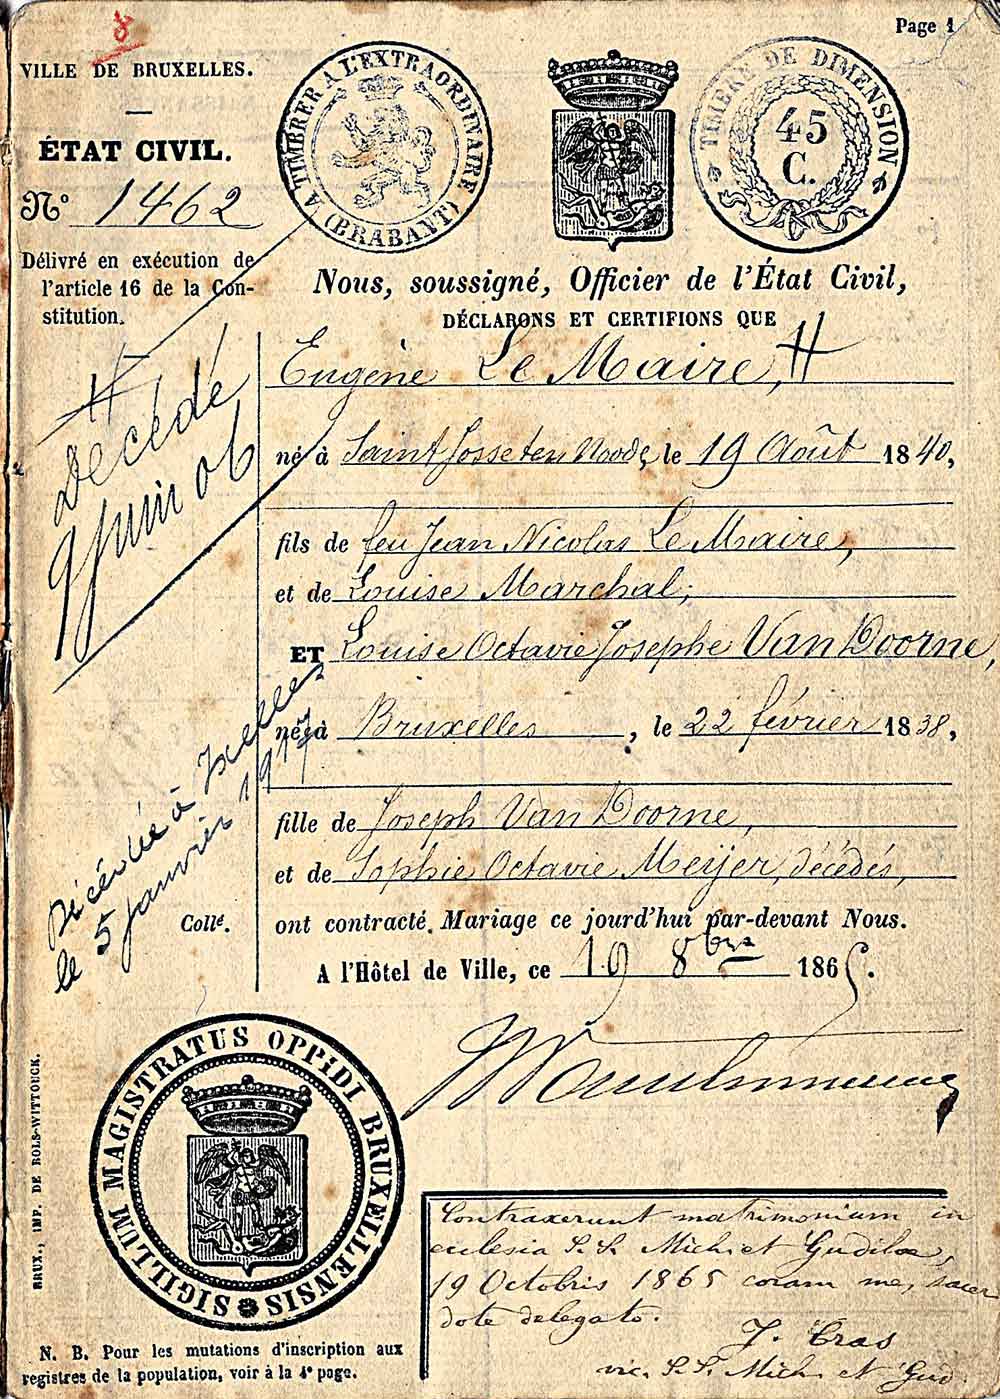 Page 1
VILLE DE BRUXELLES.
ÉTAT CIVIL.
N° 1462
Délivré en exécution de
l'article 16 de la Con-
stitution.
A TIMBRER A L'EXTRAORDINAIRE
(BRABANT)
TIMBRE DE DIMENSION
45
C.
Nous, soussigné, Officier de l'État Civil,
DÉCLARONS ET CERTIFIONS QUE
Eugène Le Maire, #
né à Saint Josse ten Noode, le 19 Août 1840,
fils de feu Jean Nicolas Le Maire,
et de Louise Marchal;
ET Louise Octavie Josephe Van Doorne,
née à Bruxelles, le 22 février 1838,
fille de Joseph Van Doorne,
et de Sophie Octavie Meijer, décédés,
ont contracté Mariage ce jourd'hui par-devant Nous.
A l'Hôtel de Ville, ce 19 8bre 1865.
#
Décédé
9 Juin 06
Décédée à Ixelles
le 5 janvier 1917
Collé.
SIGILLUM MAGISTRATUS OPPIDI BRUXELLENSIS
BRUX., IMP. DE BOLS-WITTOUCK.
N. B. Pour les mutations d'inscription aux
registres de la population, voir à la 4e page.
Contraxerunt matrimonium in
ecclesia S.S. Mich et Gudilae,
19 Octobris 1865 coram me, sacer
dote delegato.
J. Cras
vic. S.S. Mich et Gud.